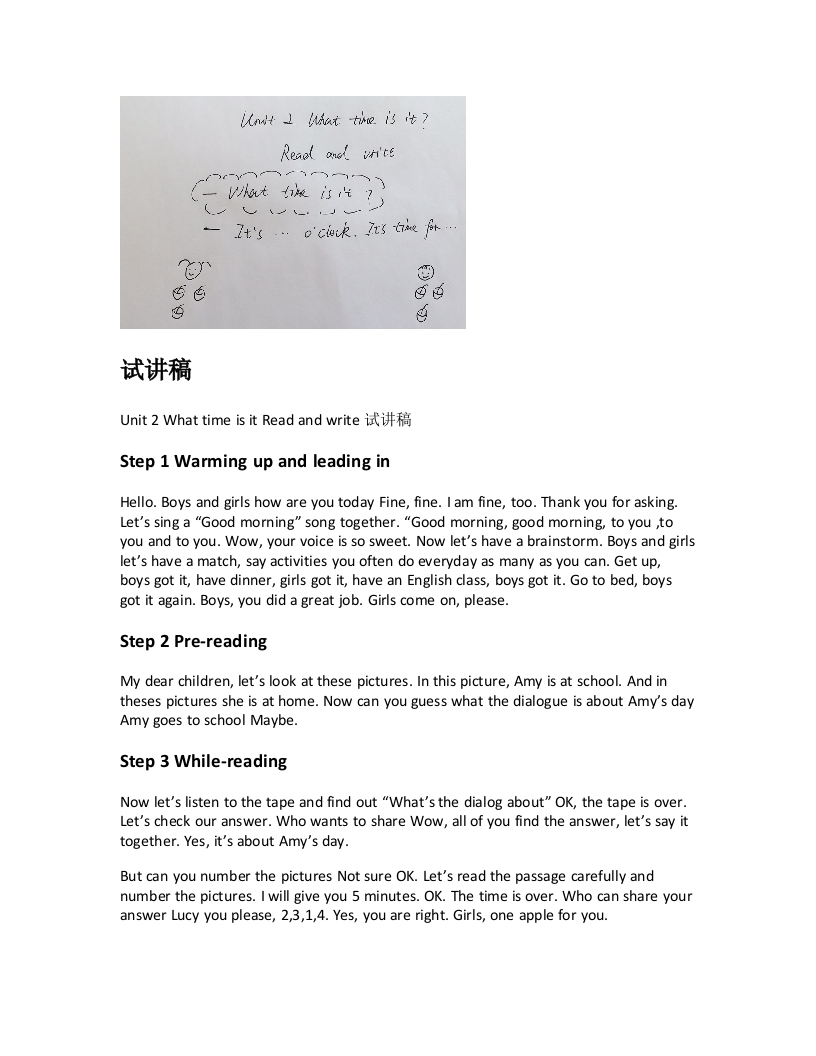 Unit 2 What time is it?
Read and write
— What time is it?
— It's ... o'clock. It's time for ...
试讲稿
Unit 2 What time is it Read and write 试讲稿
Step 1 Warming up and leading in
Hello. Boys and girls how are you today Fine, fine. I am fine, too. Thank you for asking.
Let’s sing a “Good morning” song together. “Good morning, good morning, to you ,to
you and to you. Wow, your voice is so sweet. Now let’s have a brainstorm. Boys and girls
let’s have a match, say activities you often do everyday as many as you can. Get up,
boys got it, have dinner, girls got it, have an English class, boys got it. Go to bed, boys
got it again. Boys, you did a great job. Girls come on, please.
Step 2 Pre-reading
My dear children, let’s look at these pictures. In this picture, Amy is at school. And in
theses pictures she is at home. Now can you guess what the dialogue is about Amy’s day
Amy goes to school Maybe.
Step 3 While-reading
Now let’s listen to the tape and find out “What’s the dialog about” OK, the tape is over.
Let’s check our answer. Who wants to share Wow, all of you find the answer, let’s say it
together. Yes, it’s about Amy’s day.
But can you number the pictures Not sure OK. Let’s read the passage carefully and
number the pictures. I will give you 5 minutes. OK. The time is over. Who can share your
answer Lucy you please, 2,3,1,4. Yes, you are right. Girls, one apple for you.